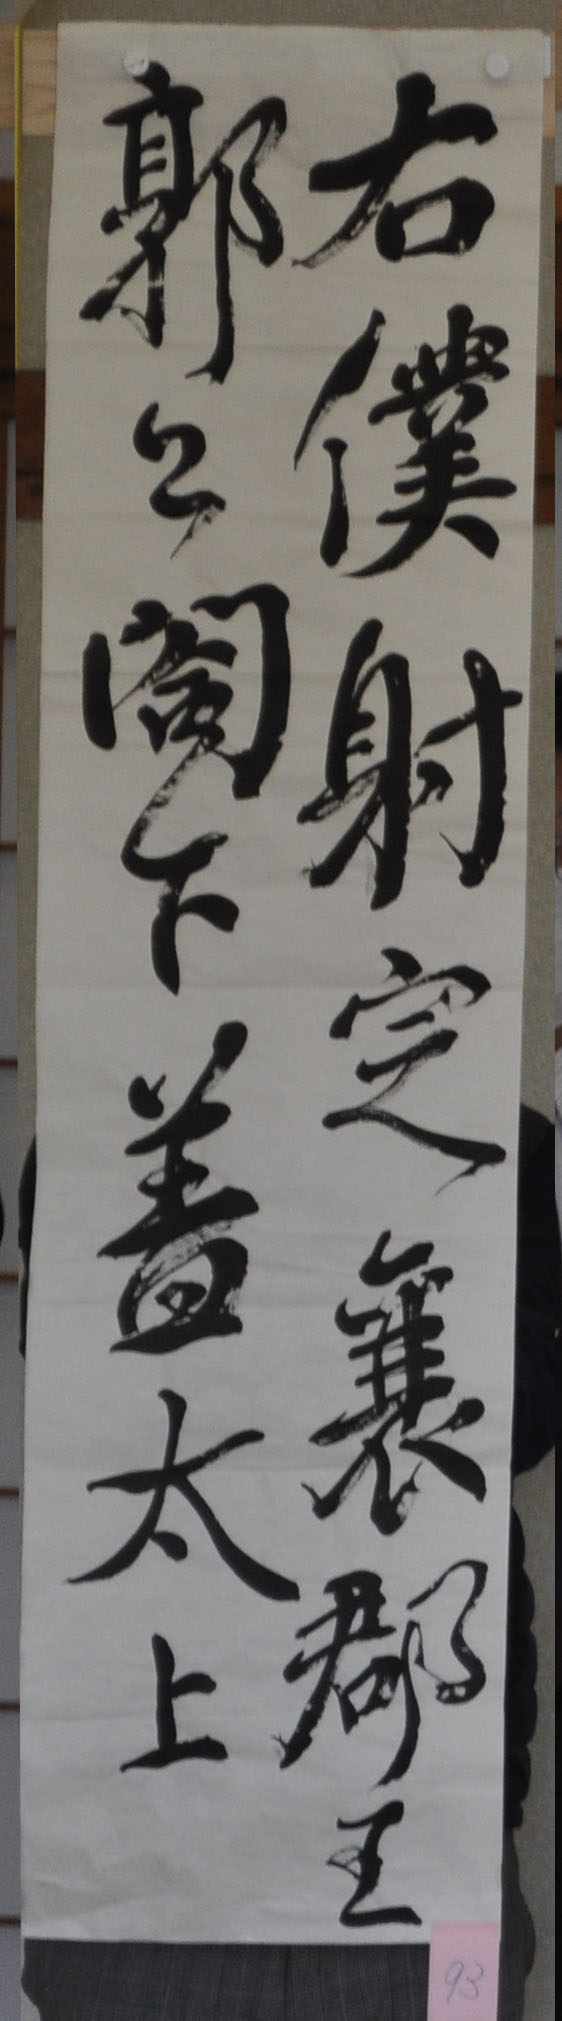 右僕射定襄郡王
郭公閤下蓋太上
93